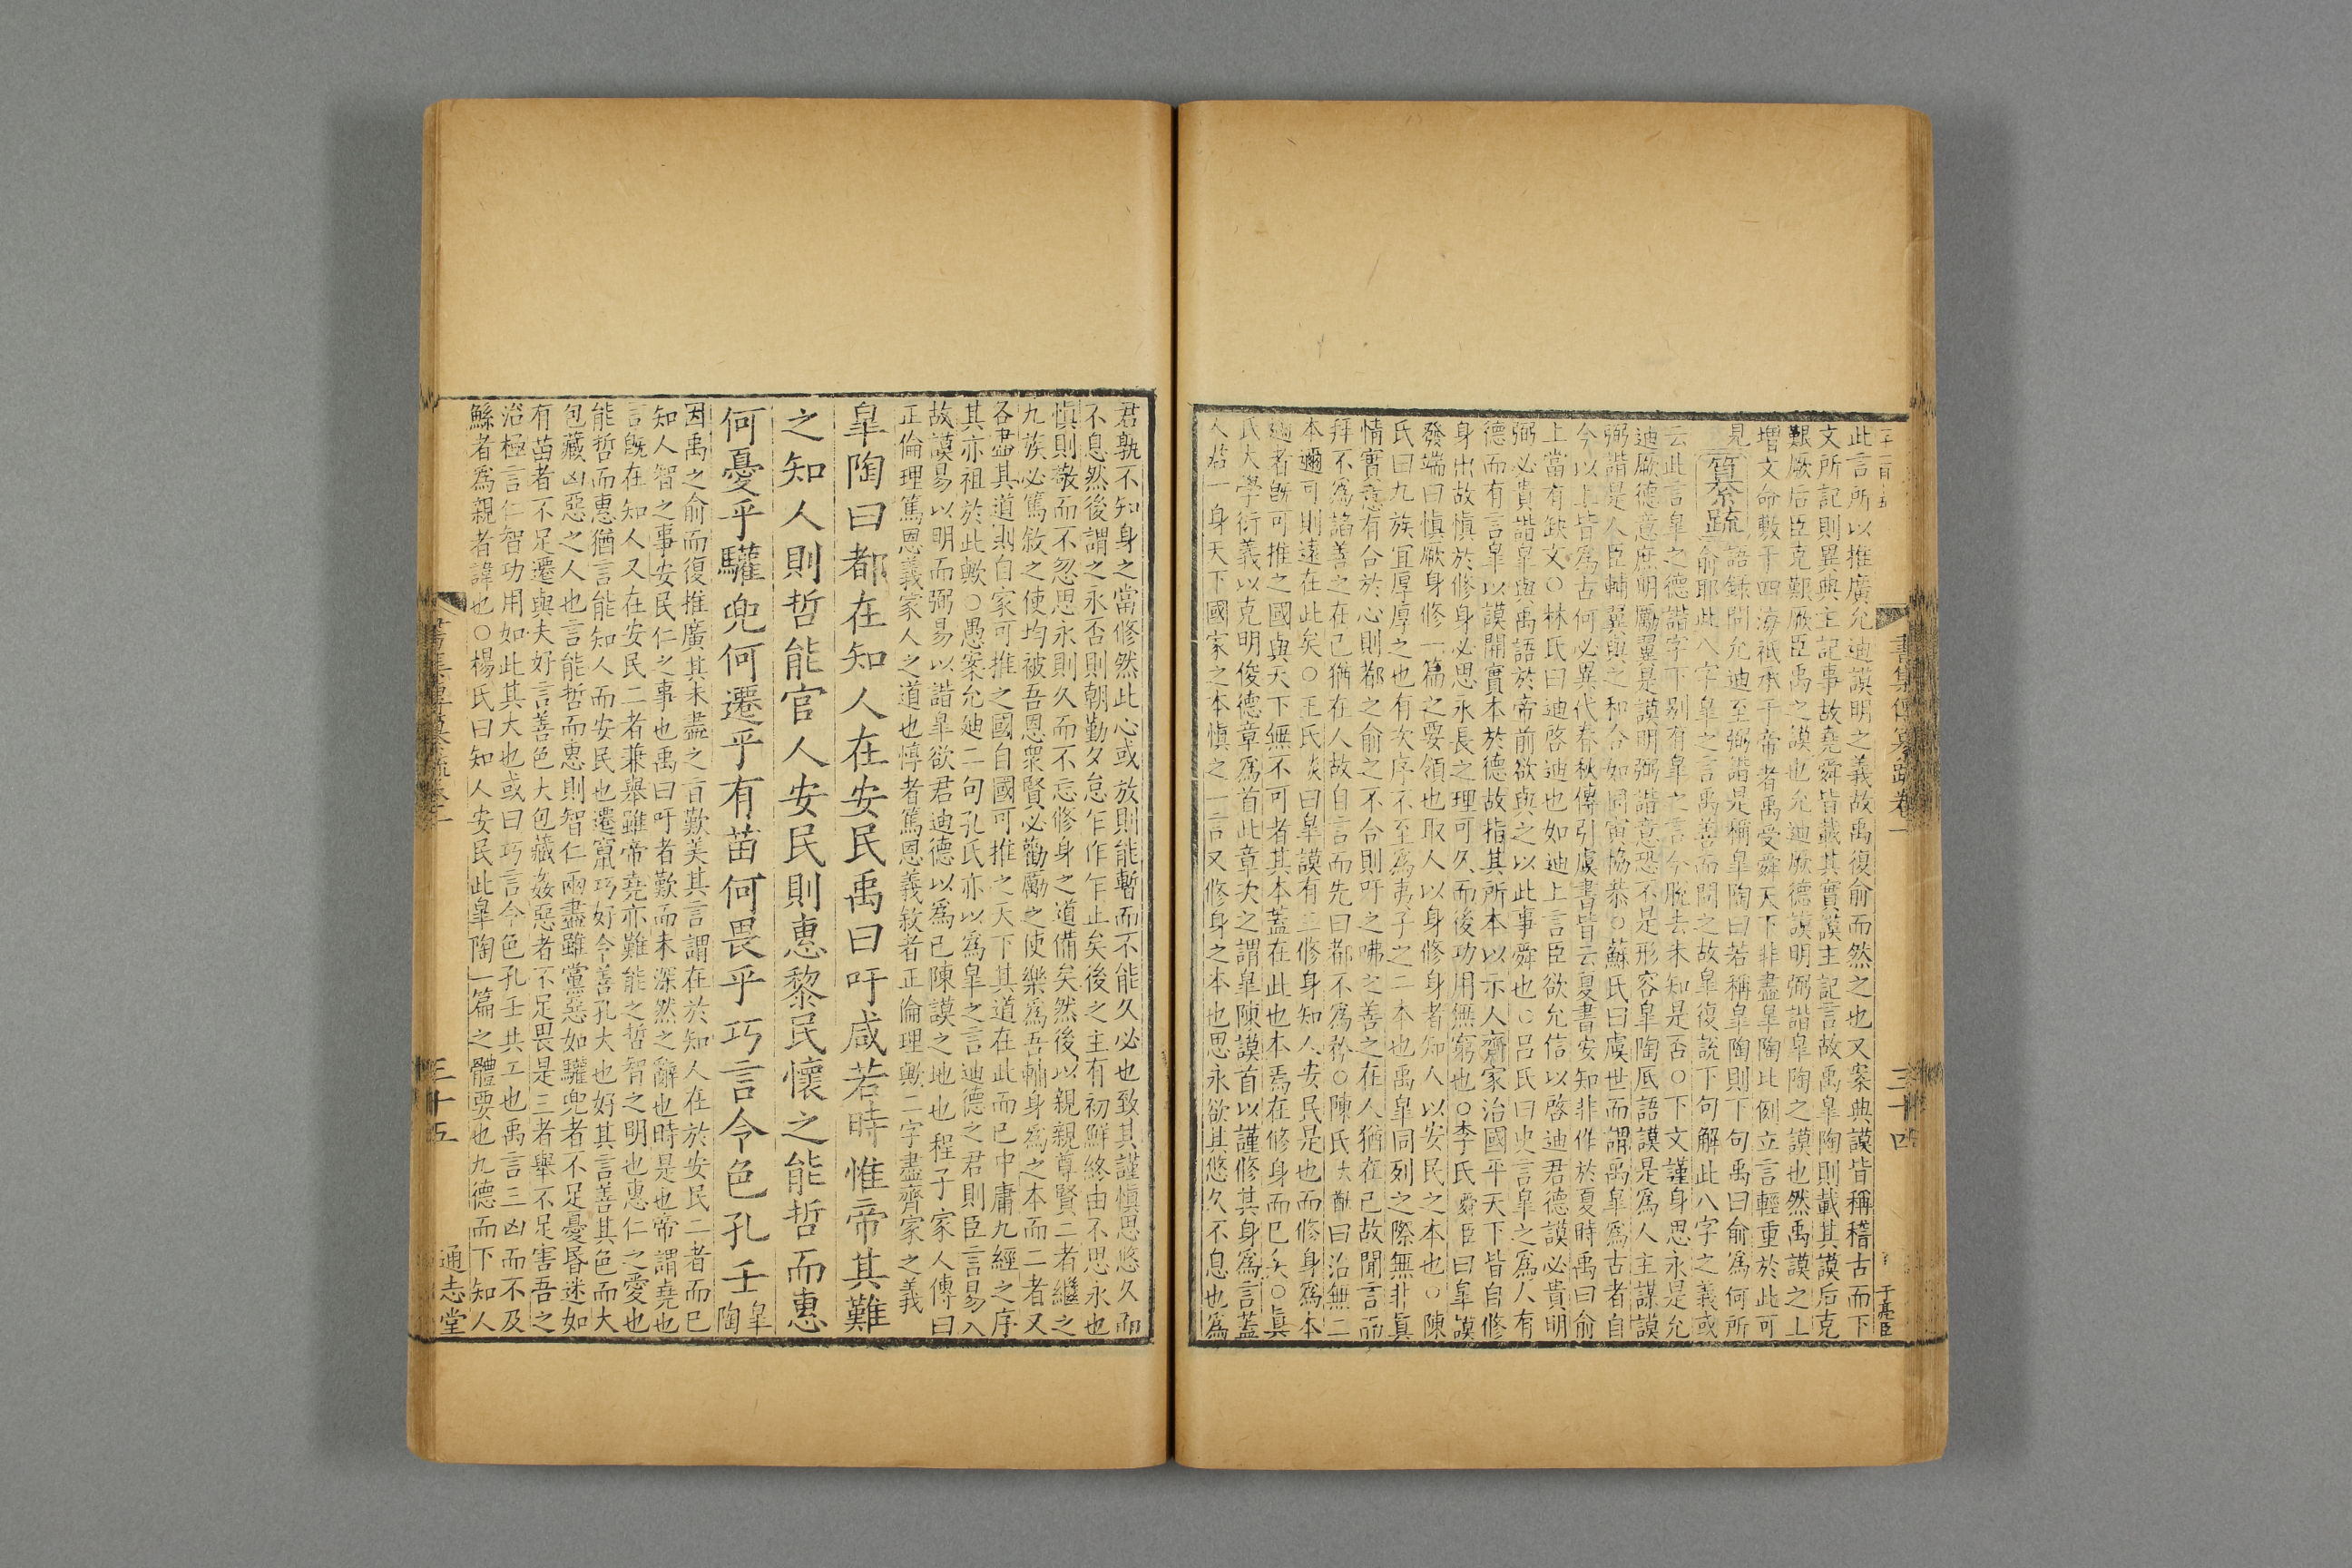 書集傳纂疏卷一
三十四
于亮臣
此言所以推廣允迪謨明之義故禹復俞而然之也又案典謨皆稱稽古而下
文所記則異典主記事故堯舜皆載其實謨主記言故禹皐陶則載其謨后克
艱厥后臣克艱厥臣禹之謨也允迪厥德謨明弼諧皐陶之謨也然禹謨之上
增文命敷于四海祗承于帝者禹受舜天下非盡皐陶比例立言輕重於此可
見 纂疏 語錄問允迪至弼諧是稱皐陶曰若稱皐陶則下句禹曰俞爲何所
俞耶此八字皐之言禹善而問之故皐復說下句解此八字之義或
云此言皐之德諧字下別有皐之言今脫去未知是否○下文謹身思永是允
迪厥德意庶明勵翼是謨明弼諧意恐不是形容皐陶底語謨是爲人主謀謨
弼諧是人臣輔翼與之和合如同寅協恭○蘇氏曰虞世而謂禹皐爲古者自
今以上皆爲古何必異代春秋傳引虞書皆云夏書安知非作於夏時禹曰俞
上當有缺文○林氏曰迪啓迪也如迪上言臣欲允信以啓迪君德謨必貴明
弼必貴諧皐與禹語於帝前欲與之以此事舜也○呂氏曰史言皐之爲人有
德而有言皐以謨開實本於德故指其所本以示人齊家治國平天下皆自修
身出故愼於修身必思永長之理可久而後功用無窮也○李氏舜臣曰皐謨
發端曰愼厥身修一篇之要領也取人以身修身者知人以安民之本也○陳
氏曰九族宜厚厚之也有次序不至爲夷子之二本也禹皐同列之際無非眞
情實意有合於心則都之俞之不合則吁之咈之善之在人猶在己故聞言而
拜不爲諂善之在己猶在人故自言而先曰都不爲矜○陳氏大猷曰治無二
本邇可則遠在此矣○王氏炎曰皐謨有三修身知人安民是也而修身爲本
邇者旣可推之國與天下無不可者其本蓋在此也本焉在修身而已矣○眞
氏大學衍義以克明俊德章爲首此章次之謂皐陳謨首以謹修其身爲言蓋
人君一身天下國家之本愼之一言又修身之本也思永欲其悠久不息也爲
君孰不知身之當修然此心或放則能暫而不能久必也致其謹愼思悠久而
不息然後謂之永否則朝勤夕怠乍作乍止矣後之主有初鮮終由不思永也
愼則敬而不忽思永則久而不忘修身之道備矣然後以親親尊賢二者繼之
九族必篤敘之使均被吾恩衆賢必勸勵之使樂爲吾輔身爲之本而二者又
各盡其道則自家可推之國自國可推之天下其道在此而已中庸九經之序
其亦祖於此歟○愚案允迪二句孔氏亦以爲皐之言迪德之君則臣言易入
故謨易以明而弼易以諧皐欲君迪德以爲已陳謨之地也程子家人傳曰
正倫理篤恩義家人之道也惇者篤恩義敘者正倫理歟二字盡齊家之義
皐陶曰都在知人在安民禹曰吁咸若時惟帝其難
之知人則哲能官人安民則惠黎民懷之能哲而惠
何憂乎驩兜何遷乎有苗何畏乎巧言令色孔壬 皐陶
因禹之俞而復推廣其未盡之旨歎美其言謂在於知人在於安民二者而已
知人智之事安民仁之事也禹曰吁者歎而未深然之辭也時是也帝謂堯也
言旣在知人又在安民二者兼舉雖帝堯亦難能之哲智之明也惠仁之愛也
能哲而惠猶言能知人而安民也遷竄巧好令善孔大也好其言善其色而大
包藏凶惡之人也言能哲而惠則智仁兩盡雖黨惡如驩兜者不足憂昏迷如
有苗者不足遷與夫好言善色大包藏姦惡者不足畏是三者舉不足害吾之
治極言仁智功用如此其大也或曰巧言令色孔壬共工也禹言三凶而不及
鯀者爲親者諱也○楊氏曰知人安民此皐陶一篇之體要也九德而下知人
三十五
通志堂